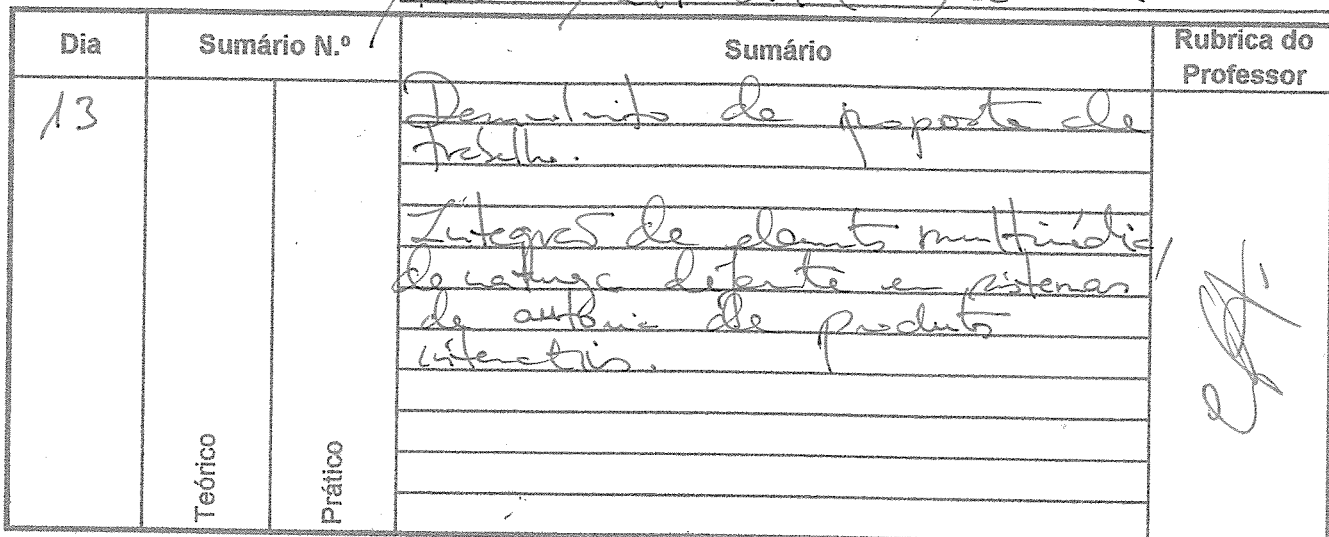 Dia Sumário N.º Sumário Rubrica do Professor
13
Desenvolvimento de proposta de
trabalho.
Integração de elementos multimédia,
de natureza diferente em sistemas
de autoria de produtos
interactivos.
Teórico
Prático